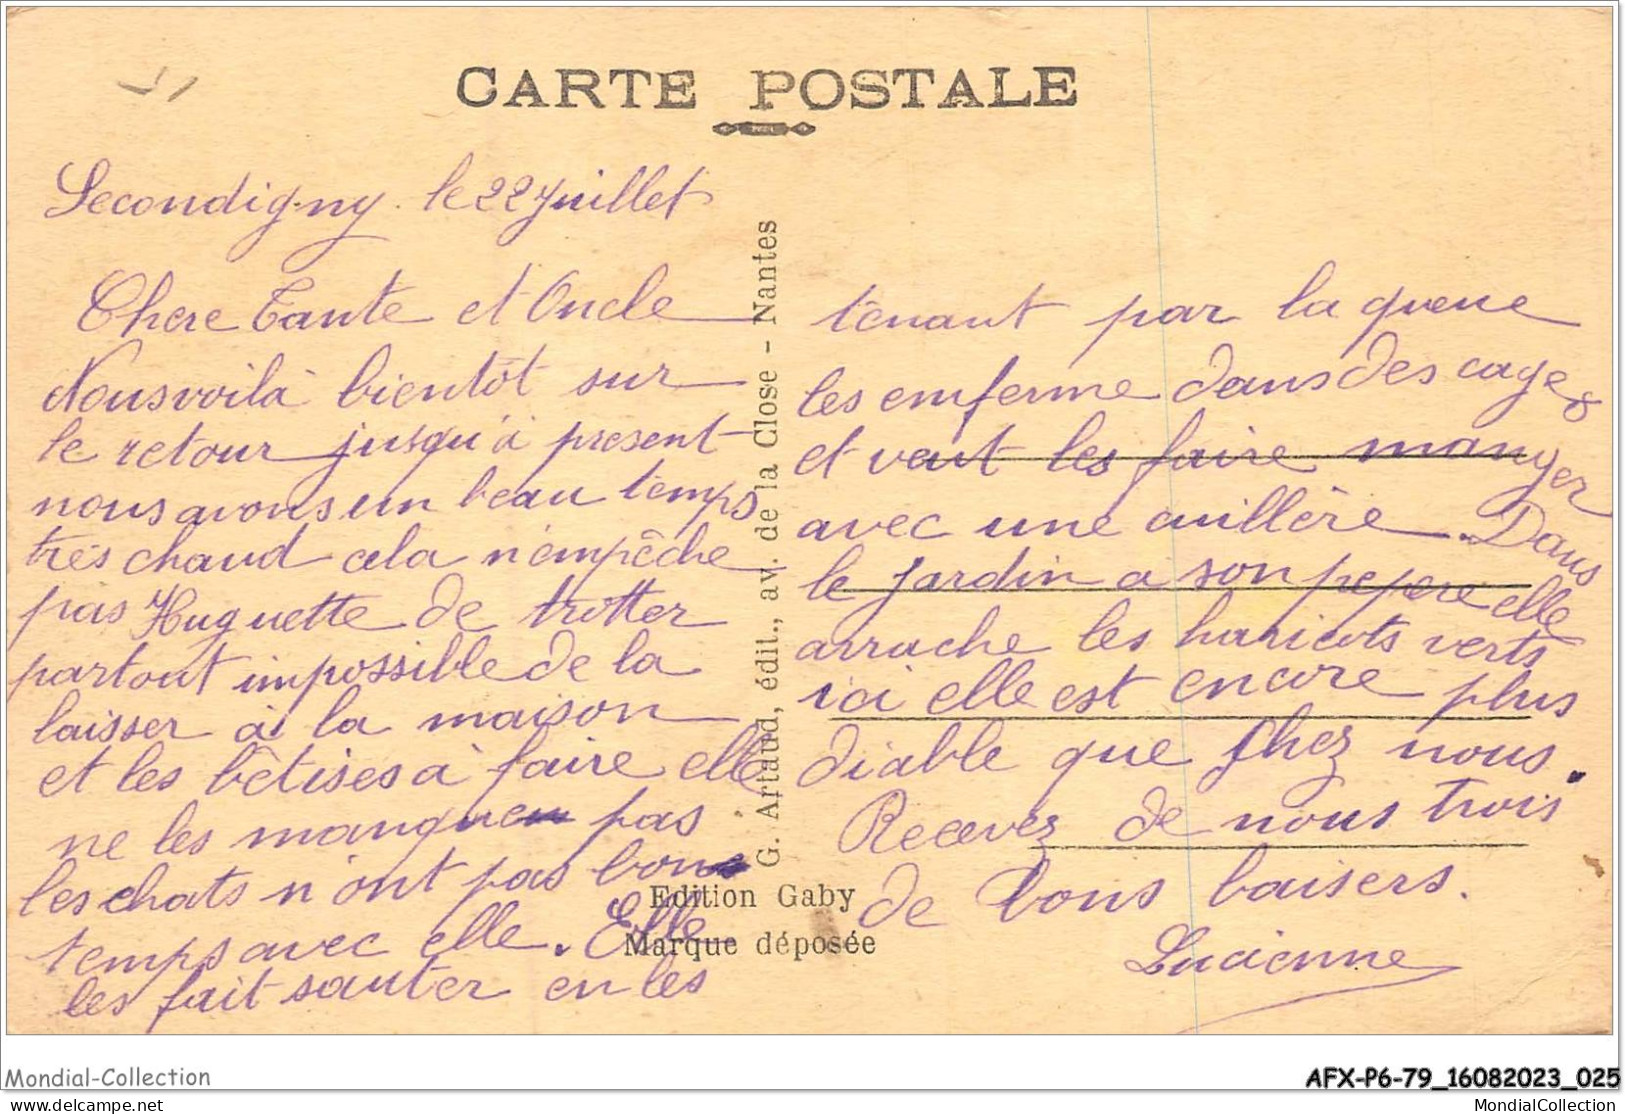 CARTE POSTALE
Secondigny le 22 Juillet
Chere Tante et Oncle
Nous voilà bientôt sur
le retour jusqu'à present
nous avons un beau temps
très chaud cela n'empêche
pas Huguette de trotter
partout impossible de la
laisser à la maison
et les bêtises à faire elle
ne les manquen pas
les chats n'ont pas bons
temps avec elle. Elle
les fait sauter en les
G. Artaud, édit., av. de la Close - Nantes
Edition Gaby
Marque déposée
tenant par la queue
les enferme dans des cages
et veut les faire manger
avec une cuillère. Dans
le jardin a son pepere elle
arrache les haricots verts
ici elle est encore plus
diable que chez nous.
Recevez de nous trois
de bons baisers.
Lucienne
Mondial-Collection
AFX-P6-79_16082023_025
delcampe.net
MondialCollection